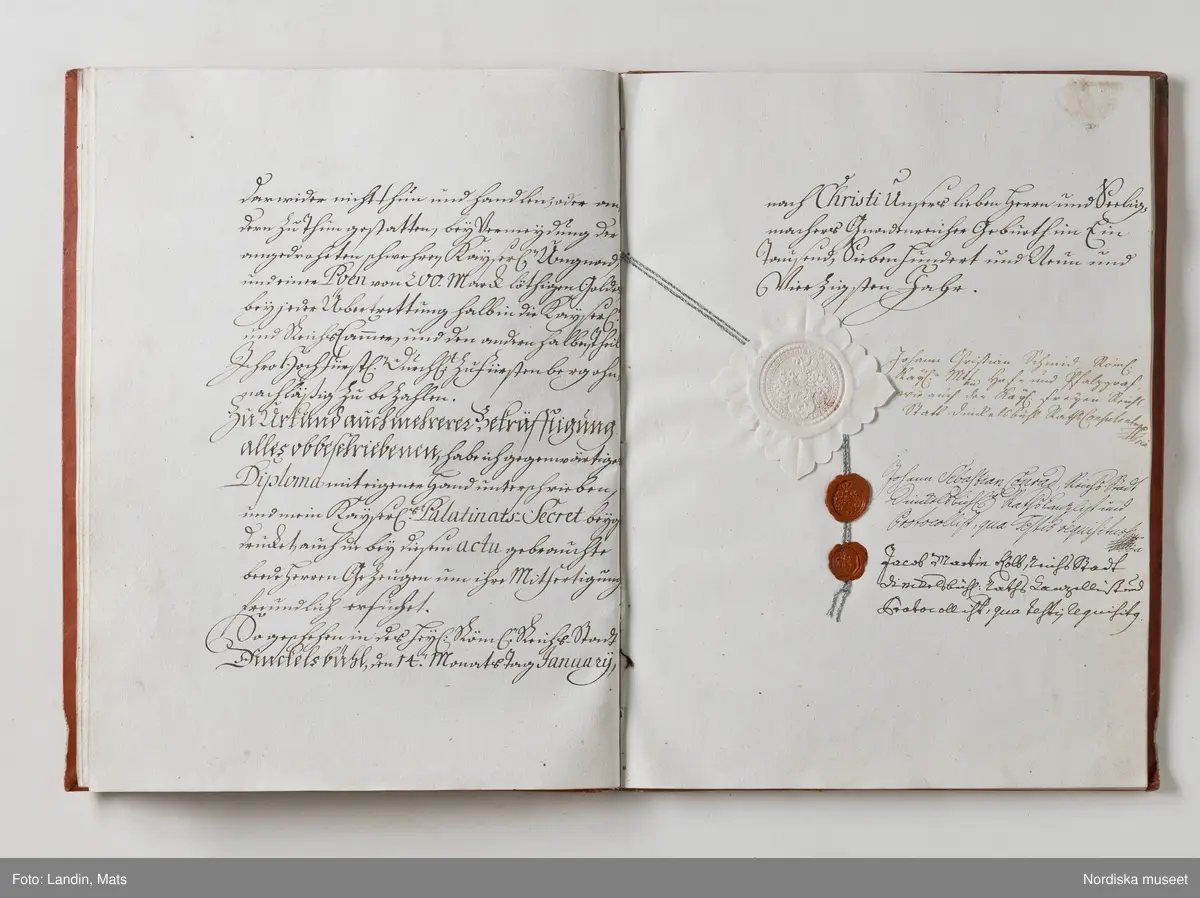 darwider nicht thun und handlen, oder an,
dern zu thun gestatten, bey Vermeydung der
angedroheten schwehren Kayserl. Ungnad,
und einer Pöen von 200. Marck löthigen Golds
bey jeder Übertrettung halb in die Kayserl.
und Reichs Cammer, und den andern halben Theil
Ihro Hochfürstl. Durchl. zu Fürstenberg ohn,
nachläßig zu bezahlen.
Zu Urkund auch mehrerer Bekräfftigung
alles obbeschriebenen, hab ich gegenwärtiges
Diploma mit eigener Hand unterschrieben,
und mein Kayserl. Palatinats-Secret beyge
drucket, auch in bey diesem actu gebrauchte
beede Herren Gezeugen um ihre Mitfertigung
freundlich ersuchet.
So geschehen in des Heyl. Röm. Reichs-Stadt
Dinckelsbühl, den 14. Monats Tag January,
nach Christi Unsers lieben Herrn und Seelig,
machers Gnadenreicher Geburth im Ein
Tausend, Sieben hundert und Neun und
Vierzigsten Jahr.
Johann Christian Schmid, Röm.
Kayl. Mtt. Hof- und Pfalzgraf
wie auch der Kayl. freyen Reichs
Statt Dinckelsbühl Rath Consulent
Johann Sebastian Conrad, Reichs Stadt
Dinckelsbühl. Raths Canzlist und
Protocollist, qua Testis requisitus
Jacob Martin Holl, Reichs Stadt
Dinckelsbühl. Raths Canzellist und
Protocollist, qua testis requisitg.
Foto: Landin, Mats
Nordiska museet